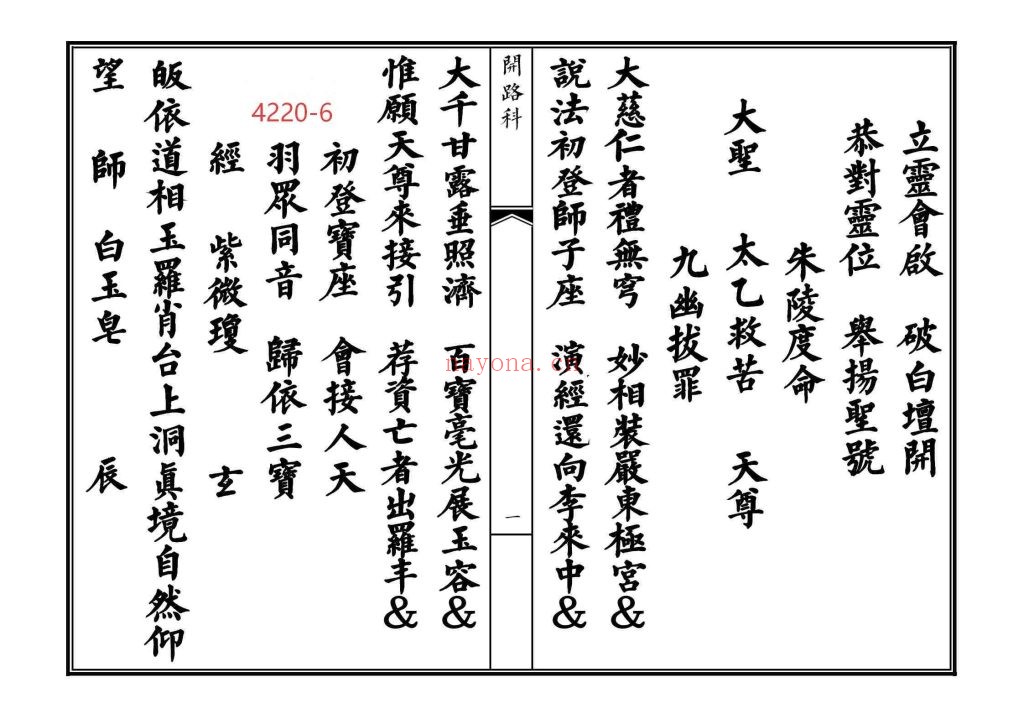 立靈會啟 破白壇開
恭對靈位 舉揚聖號
朱陵度命
大聖 太乙救苦 天尊
九幽拔罪
大慈仁者禮無穹 妙相裝嚴東極宮&
說法初登師子座 演經還向李來中&
開路科
一
大千甘露垂照濟 百寶毫光展玉容&
惟願天尊來接引 荐資亡者出羅丰&
初登寶座 會接人天
羽眾同音 歸依三寶
經 紫微瓊 玄
皈依道相玉羅肖台上洞眞境自然仰
望 師 白玉皂 辰
4220-6
nayona.cn